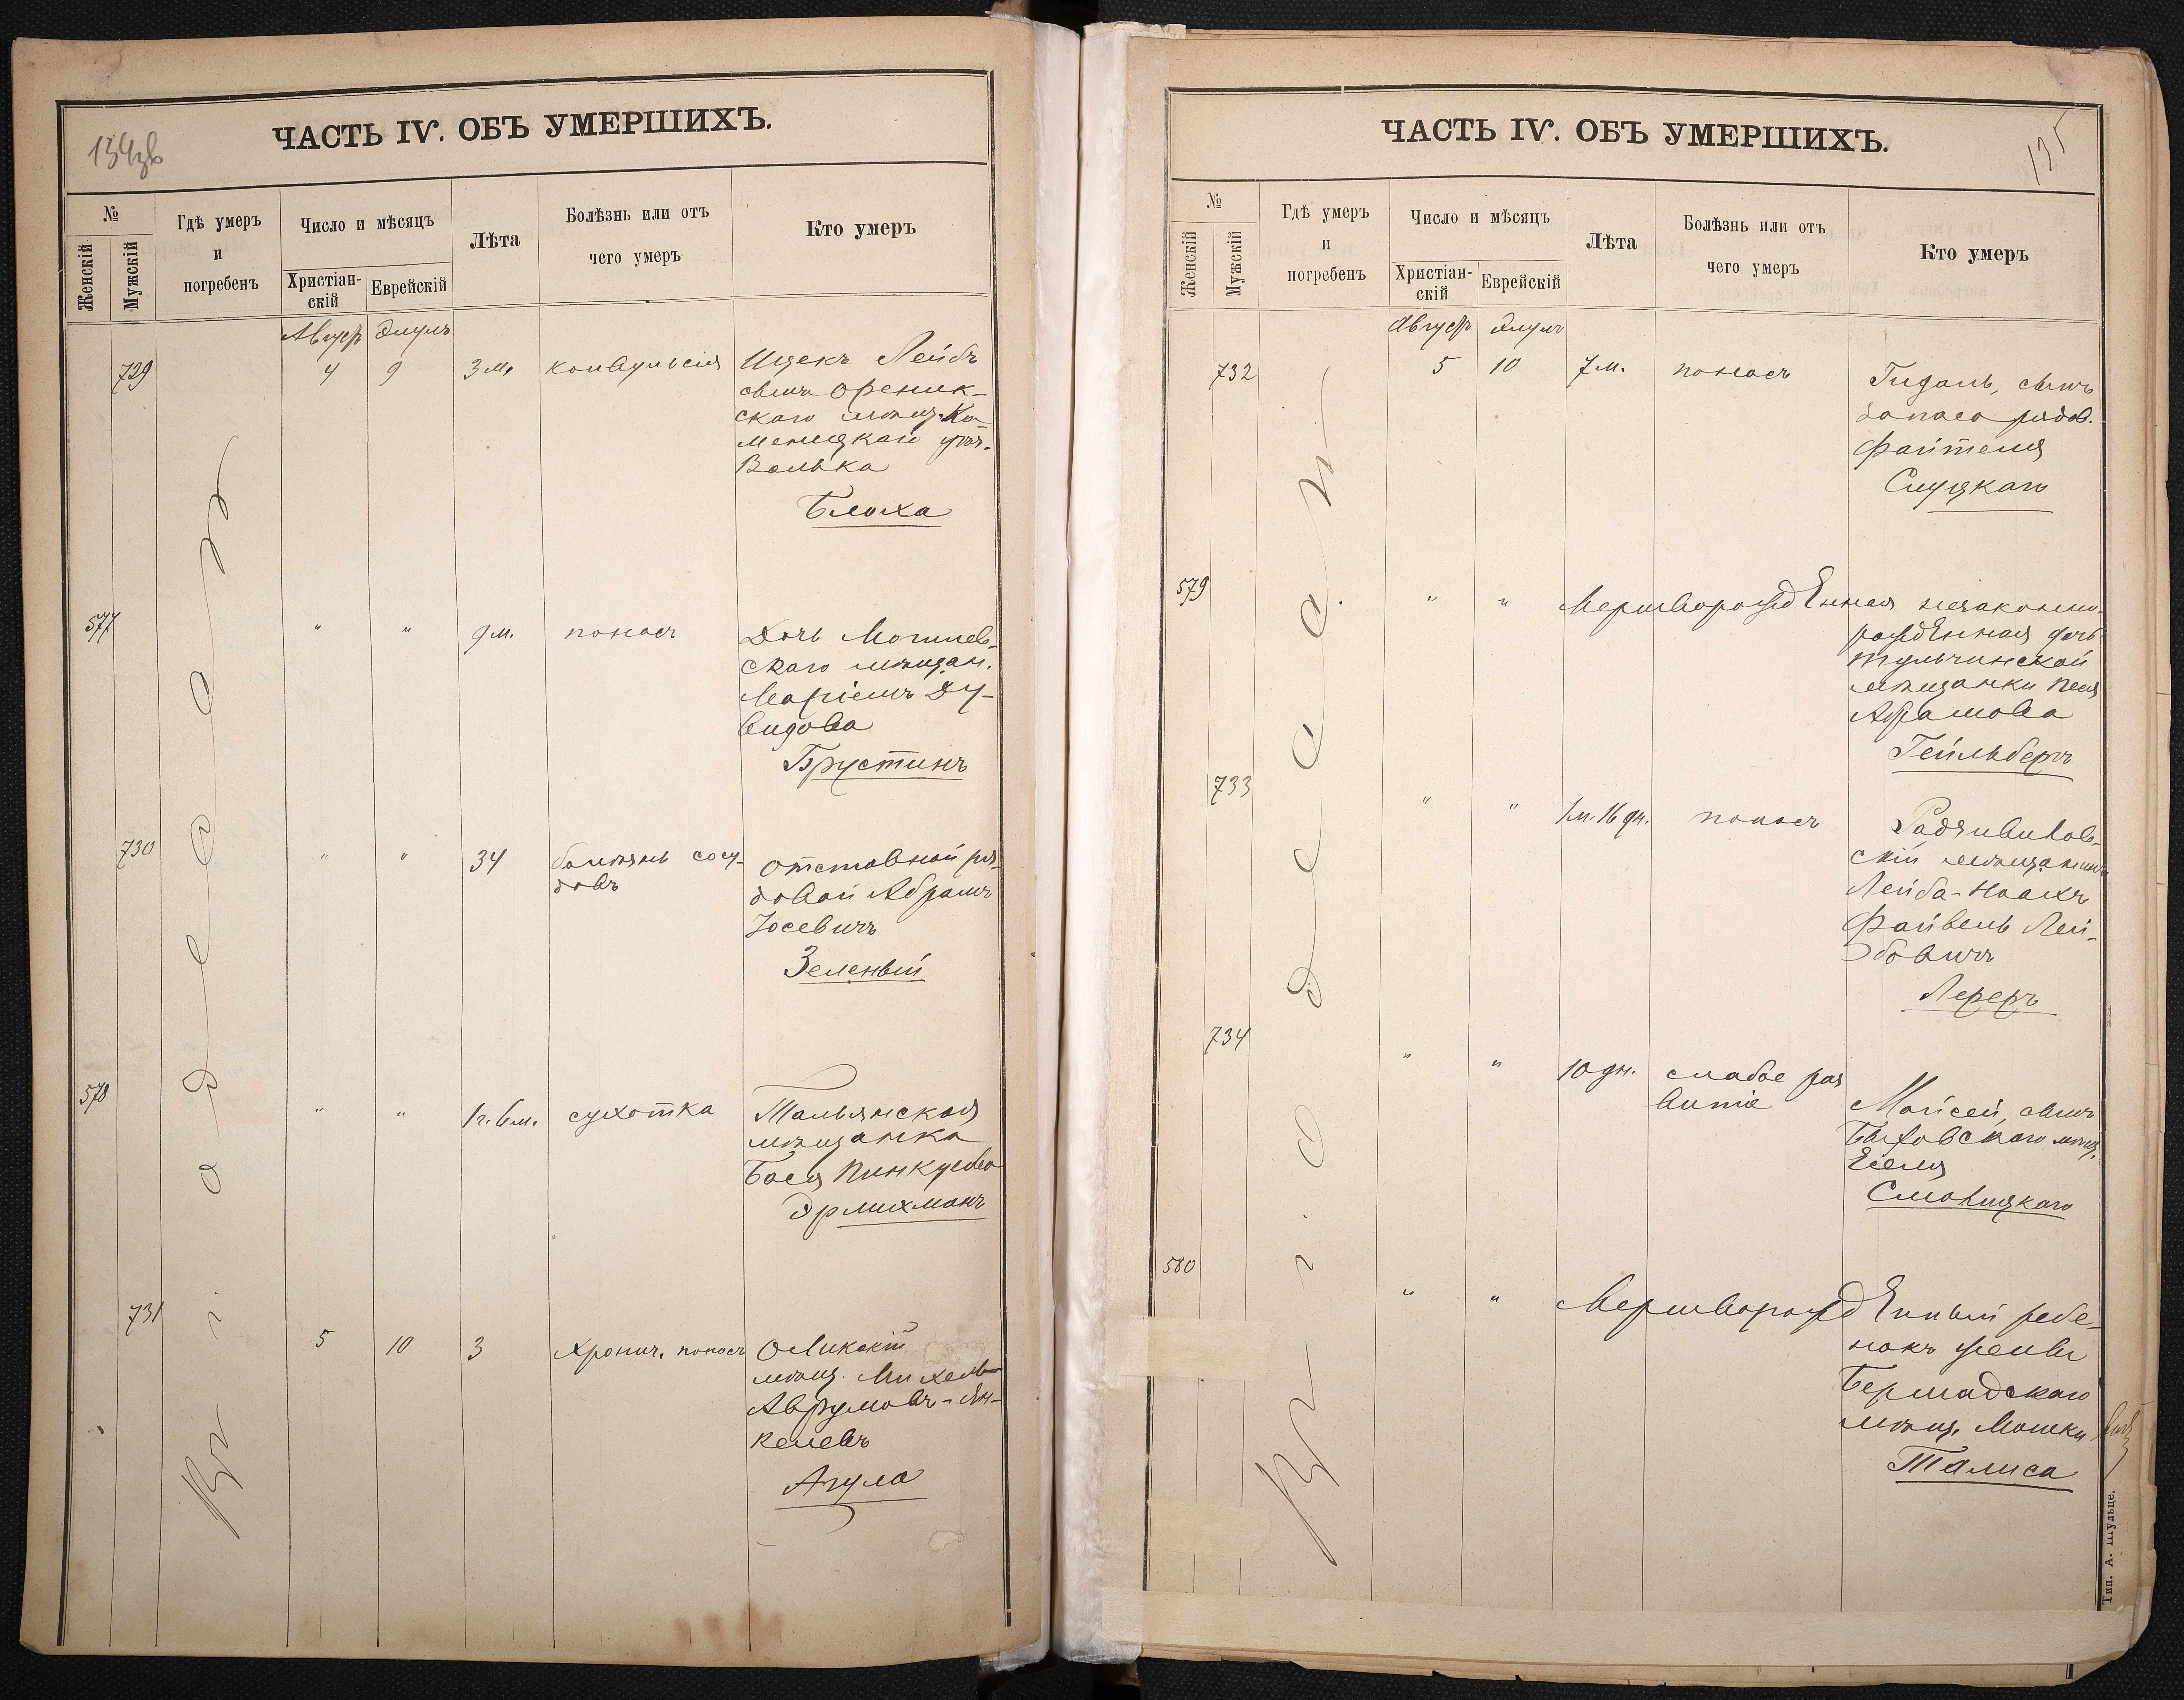 134зв
ЧАСТЬ IV. ОБЪ УМЕРШИХЪ.
№
Женскій
Мужскій
Гдѣ умеръ
и
погребенъ
Число и мѣсяцъ
Христіан-
скій
Еврейскій
Лѣта
Болѣзнь или отъ
чего умеръ
Кто умеръ
Въ г. Одессѣ
Август Элулъ
729 4 9 3 м. конвульсія Ицекъ Лейбъ
сынъ Ореник-
скаго мѣщ. Ка-
менецкаго уѣз.
Волька
Блоха
577 " " 9 м. поносъ Дочь Могилев-
скаго мѣщан.
Маріемъ Ду-
видова
Брустинъ
730 " " 34 болѣзнь сосу-
довъ
отставной ря-
довой Абрамъ
Іосевичъ
Зеленый
578 " " 1 г. 6 м. сухотка Тальянская
мѣщанка
Бася Пинкусова
Эрлихманъ
731 5 10 3 Хронич. поносъ Оликскій
мѣщ. Михель
Аврумовъ-Ян-
келевъ
Агула
135
ЧАСТЬ IV. ОБЪ УМЕРШИХЪ.
№
Женскій
Мужскій
Гдѣ умеръ
и
погребенъ
Число и мѣсяцъ
Христіан-
скій
Еврейскій
Лѣта
Болѣзнь или отъ
чего умеръ
Кто умеръ
Въ г. Одессѣ
Август Элулъ
732 5 10 7 м. поносъ Гидаль, сынъ
запасо рядов.
Файтеля
Слуцкаго
579 " " Мертворожденная незаконно-
рожденная дочь
тульчинской
мѣщанки Песя
Абрамова
Гейльберъ
733 " " 1 м. 16 дн. поносъ Радзивилов-
скій мѣщанинъ
Лейба-Ноахъ
Файвель Лей-
бовичъ
Лереръ
734 " " 10 дн. слабое раз
витіе
Мойсей, сынъ
Быховскаго мѣщ.
Еселя
Словицкаго
580 " " Мертворожденный ребе-
нокъ жены
Бершадскаго
мѣщ. Мошки
Талиса
Тип. А. Шульце.